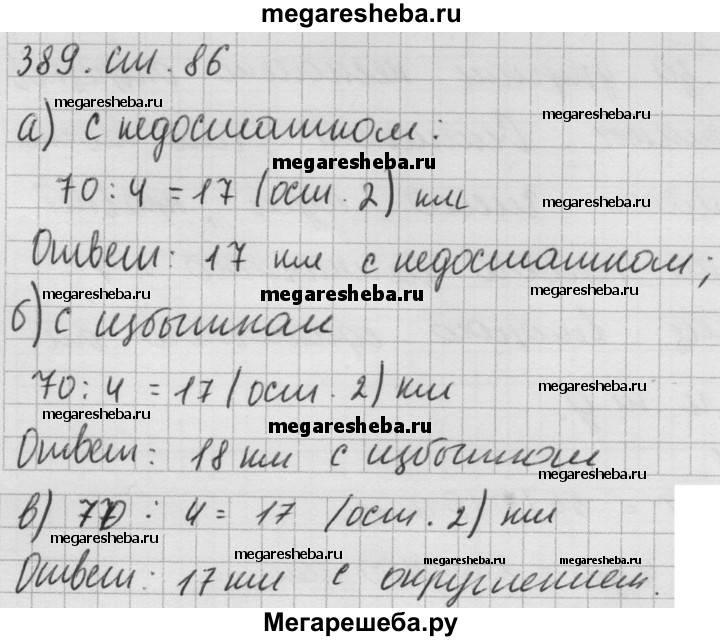 megaresheba.ru
389. ст. 86
megaresheba.ru
megaresheba.ru
а) с недостатком:
megaresheba.ru
70 : 4 = 17 (ост. 2) км
megaresheba.ru
megaresheba.ru
Ответ: 17 км с недостатком;
megaresheba.ru
megaresheba.ru
megaresheba.ru
б) с избытком
70 : 4 = 17 (ост. 2) км
megaresheba.ru
megaresheba.ru
megaresheba.ru
Ответ: 18 км с избытком
megaresheba.ru
в) 70 : 4 = 17 (ост. 2) км
megaresheba.ru
megaresheba.ru
megaresheba.ru
megaresheba.ru
Ответ: 17 км с округлением.
Мегарешеба.ру